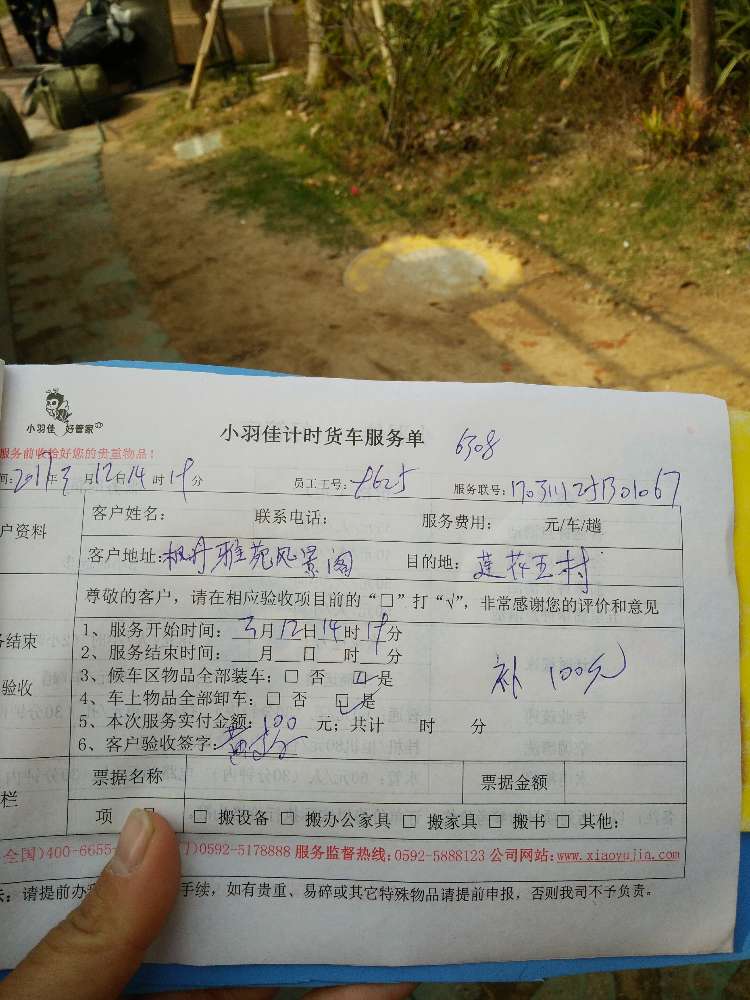 小羽佳 好管家
小羽佳计时货车服务单 6308
服务前收拾好您的贵重物品!
间:2017年3月12日14时19分 员工工号: 服务联号:
户资料
客户姓名: 联系电话: 服务费用: 元/车/趟
客户地址:枫丹雅苑风景阁 目的地:莲花五村
尊敬的客户，请在相应验收项目前的“□”打“√”，非常感谢您的评价和意见
务结束
验收
1、服务开始时间:3月12日14时19分
2、服务结束时间: 月 日 时 分
3、候车区物品全部装车:□ 否 □是
补 100元
4、车上物品全部卸车:□ 否 □是
5、本次服务实付金额:100 元;共计 时 分
6、客户验收签字:
栏
票据名称 票据金额
项 目 □ 搬设备 □ 搬办公家具 □ 搬家具 □ 搬书 □ 其他:
全国)400-6655- 门)0592-5178888 服务监督热线:0592-5888123 公司网站:www.xiaoyujin.com
示:请提前办 手续，如有贵重、易碎或其它特殊物品请提前申报，否则我司不予负责。